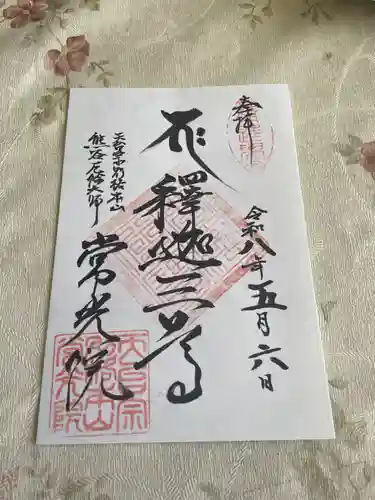 奉拝
令和八年五月六日
釋迦三尊
天台宗別格本山
熊谷厄除大師
常光院
天台宗
常光院